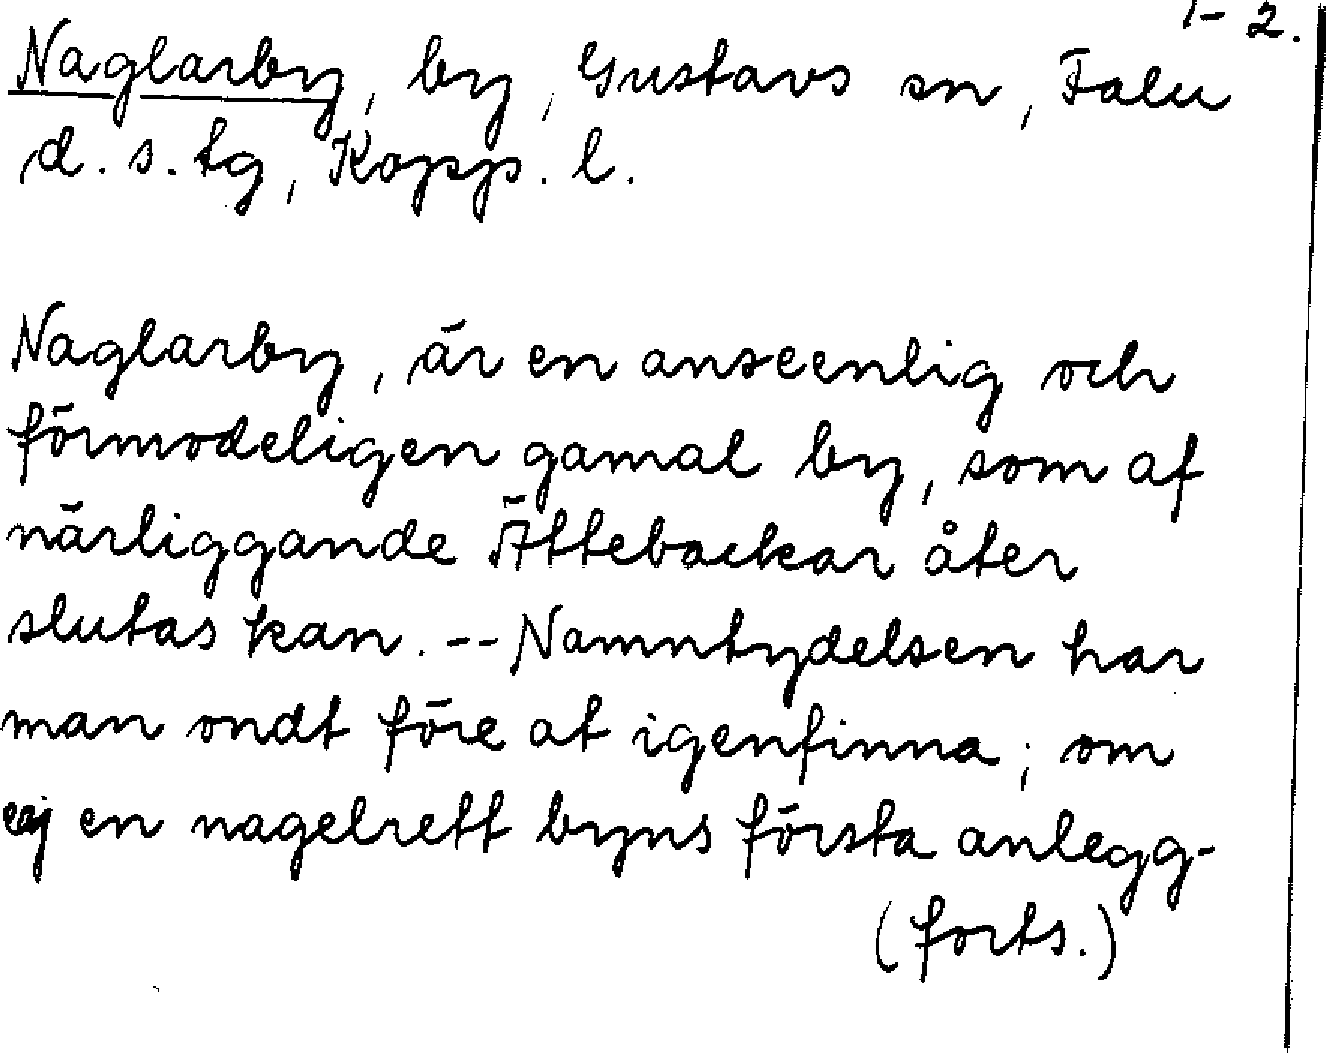 1-2.
Naglarby, by, Gustavs sn, Falu
d. s. tg, Kopp. l.
Naglarby, är en anseenlig och
förmodeligen gamal by, som af
närliggande Ättebackar åter
slutas kan. -- Namntydelsen har
man ondt före at igenfinna; om
ej en nagelrett byns första anlegg-
(forts.)